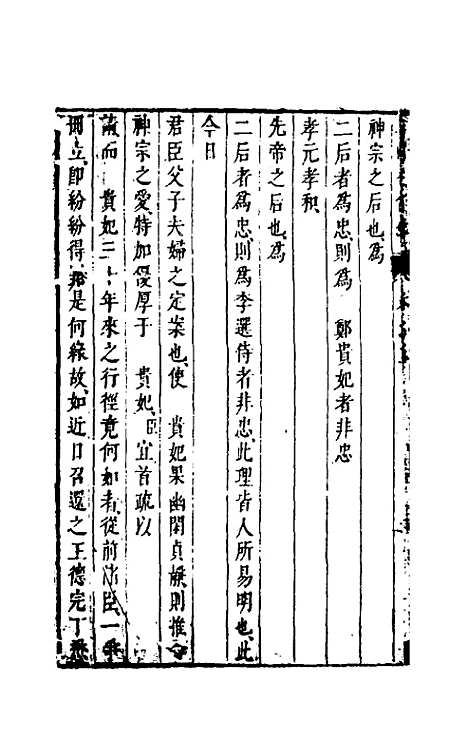 神宗之后也為
二后者為忠則為　鄭貴妃者非忠
孝元孝和
先帝之后也為
二后者為忠則為李選侍者非忠此理皆人所易明也此
今日
君臣父子夫婦之定案也使　貴妃果幽閑貞嫕則推
神宗之愛特加優厚于　貴妃臣宜首疏以
而　貴妃三十年來之行徑竟何如者從前臣一
冊立即紛紛得是何緣故如近日召還之王德完丁